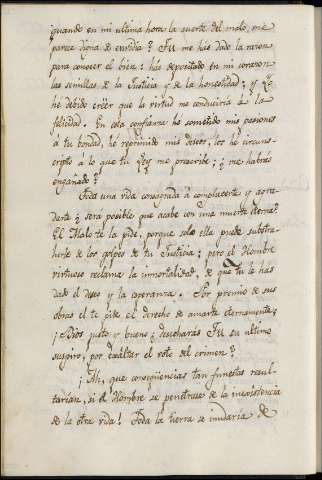 quando en mi ultima hora la suerte del malo, me
parece digna de envidia? Tu me has dado la razon
para conocer el bien: has depositado en mi corazon
las semillas de la Justicia y de la honestidad; y
he debido créèr que la virtud me conduciria a la
felicidad. En esta confianza he sometido mis pasiones
á tu bondad, he reprimido mis deseos, los he circuns-
cripto á lo que tu Ley me prescribe; ¿me habras
engañado?
Toda una vida consagrada á complacerte y agra-
darte ¿sera posible que acabe con una muerte eterna?
El Malo te la pide, porque solo ella puede substra-
herle de los golpes de tu Justicia; pero el Hombre
virtuoso reclama la inmortalidad, de que tu le has
dado el deseo y la esperanza. Por premio de sus
obras el te pide el derecho de amarte eternamente;
¡Dios justo y bueno! ¿desecharás Tu su ultimo
suspiro, por exâltar el voto del crimen?
¡Ah, que conseqüencias tan funestas resul-
tarian, si el Hombre se penetrase de la inexistencia
de la otra vida! Toda la tierra se inudaria de